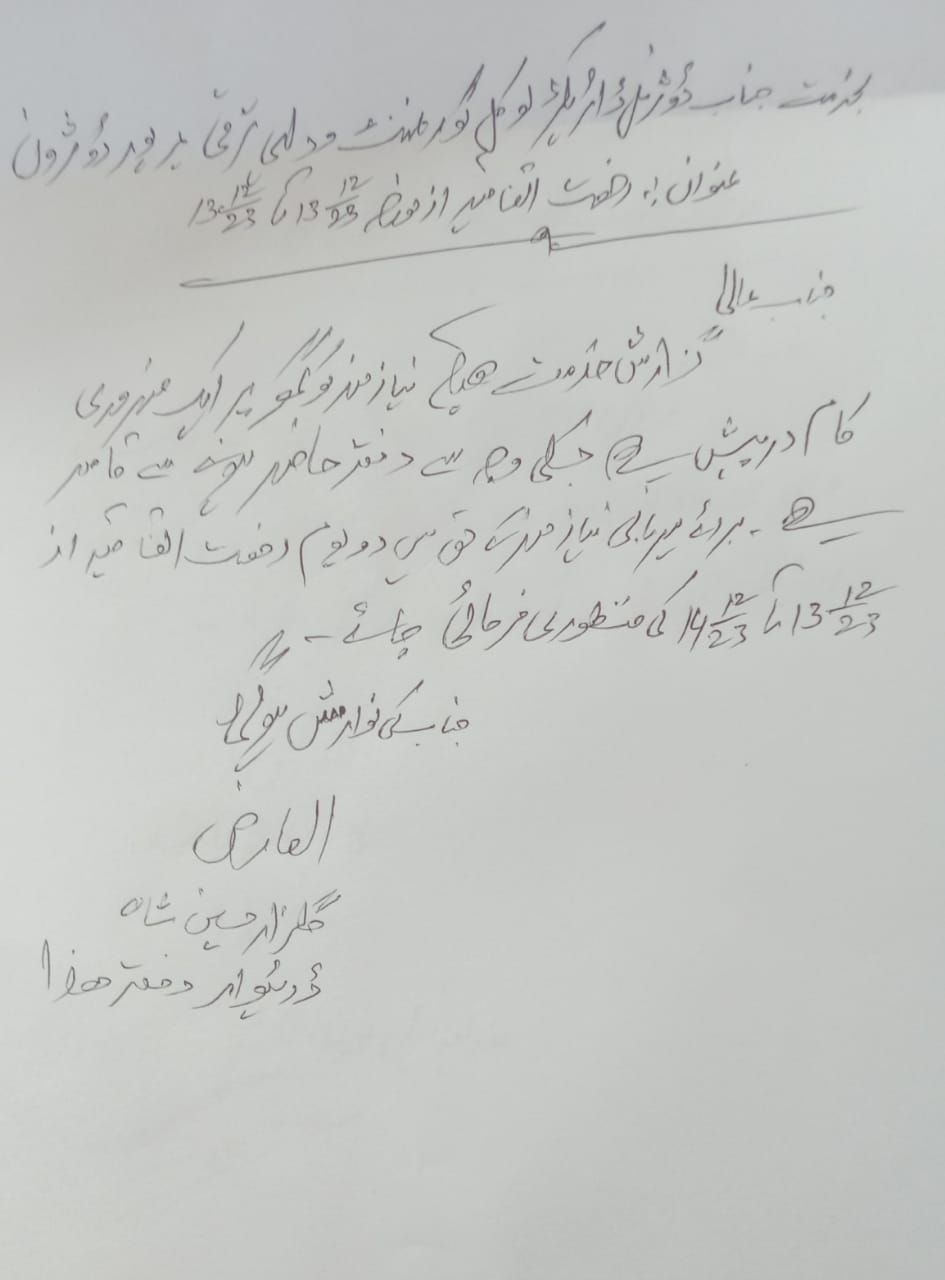 بخدمت جناب ڈویژنل ڈائریکٹر لوکل گورنمنٹ و دیہی ترقی میرپور ڈویژن
عنوان :۔ رخصت اتفاقیہ از مورخہ 13-12/23 تا 13-12/23
جناب عالی
گزارش خدمت ھیکہ نیازمند کو گھر پر ایک ضروری
کام درپیش ہے جسکی وجہ سے دفتر حاضر ہونے سے قاصر
ہے ۔ برائے مہربانی نیازمند کے حق میں دو یوم رخصت اتفاقیہ از
13-12/23 تا 14-12/23 کی منظوری فرمائی جائے ۔
جناب کی نوازش ہوگی
العارض
گلزار حسین شاہ
ڈرائیور دفتر ھذا